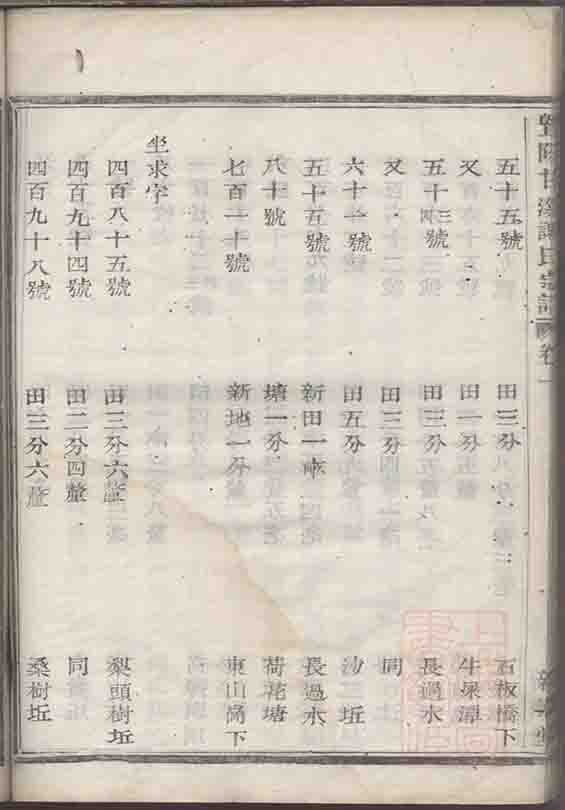 五十五號 田三分 石板橋下
又 田一分 牛泉潭
五十三號 田三分 長過水
又 田三分 同
六十一號 田五分 沙三坵
五十五號 新田一畝 長過水
八十號 塘一分 荷花塘
七百一十號 新地一分 東山崗下
坐求字
四百八十五號 田三分六釐 梨頭樹坵
四百九十四號 田二分四釐 同
四百九十八號 田三分六釐 桑樹坵